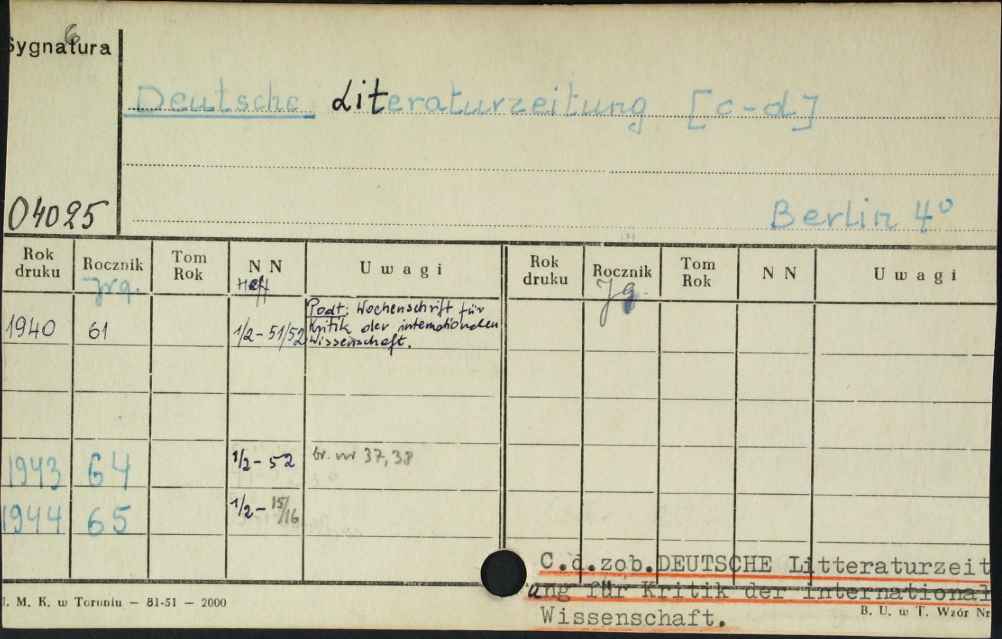 6
Sygnatura
Deutsche Literaturzeitung [c-d]
04025
Berlin 4°
Rok druku Rocznik Jrg. Tom Rok N N Heft Uwagi Rok druku Rocznik Jg. Tom Rok N N Uwagi
1940 61 1/2-51/52 Podt: Wochenschrift für
Kritik der internationalen
Wissenschaft.
1943 64 1/2-52 br. nr 37,38
1944 65 1/2-15/16
C.d.zob.DEUTSCHE Litteraturzeit
ung für Kritik der international
Wissenschaft.
I. M. K. w Toruniu — 81-51 — 2000
B. U. w T. Wzór Nr